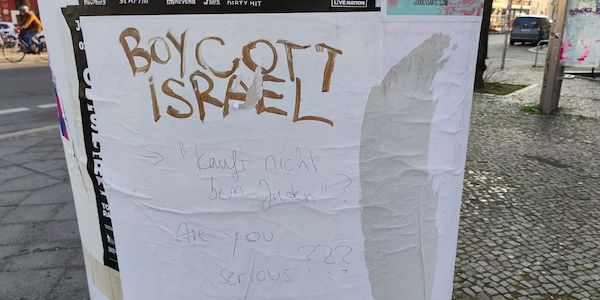 DIRTY HIT
LIVE NATION
BOYCOTT
ISRAEL
→ "kauft nicht
beim Juden"?
Are you
serious ???